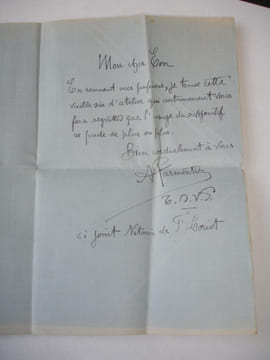 Mon cher Con.
En remuant mes papiers, je trouve cette
vieille scie d'atelier qui certainement vous
fera regretter que l'usage du subjonctif
se perde de plus en plus.
Bien cordialement à vous.
A Parmentier
T. S. V. P.
ci joint Notice de